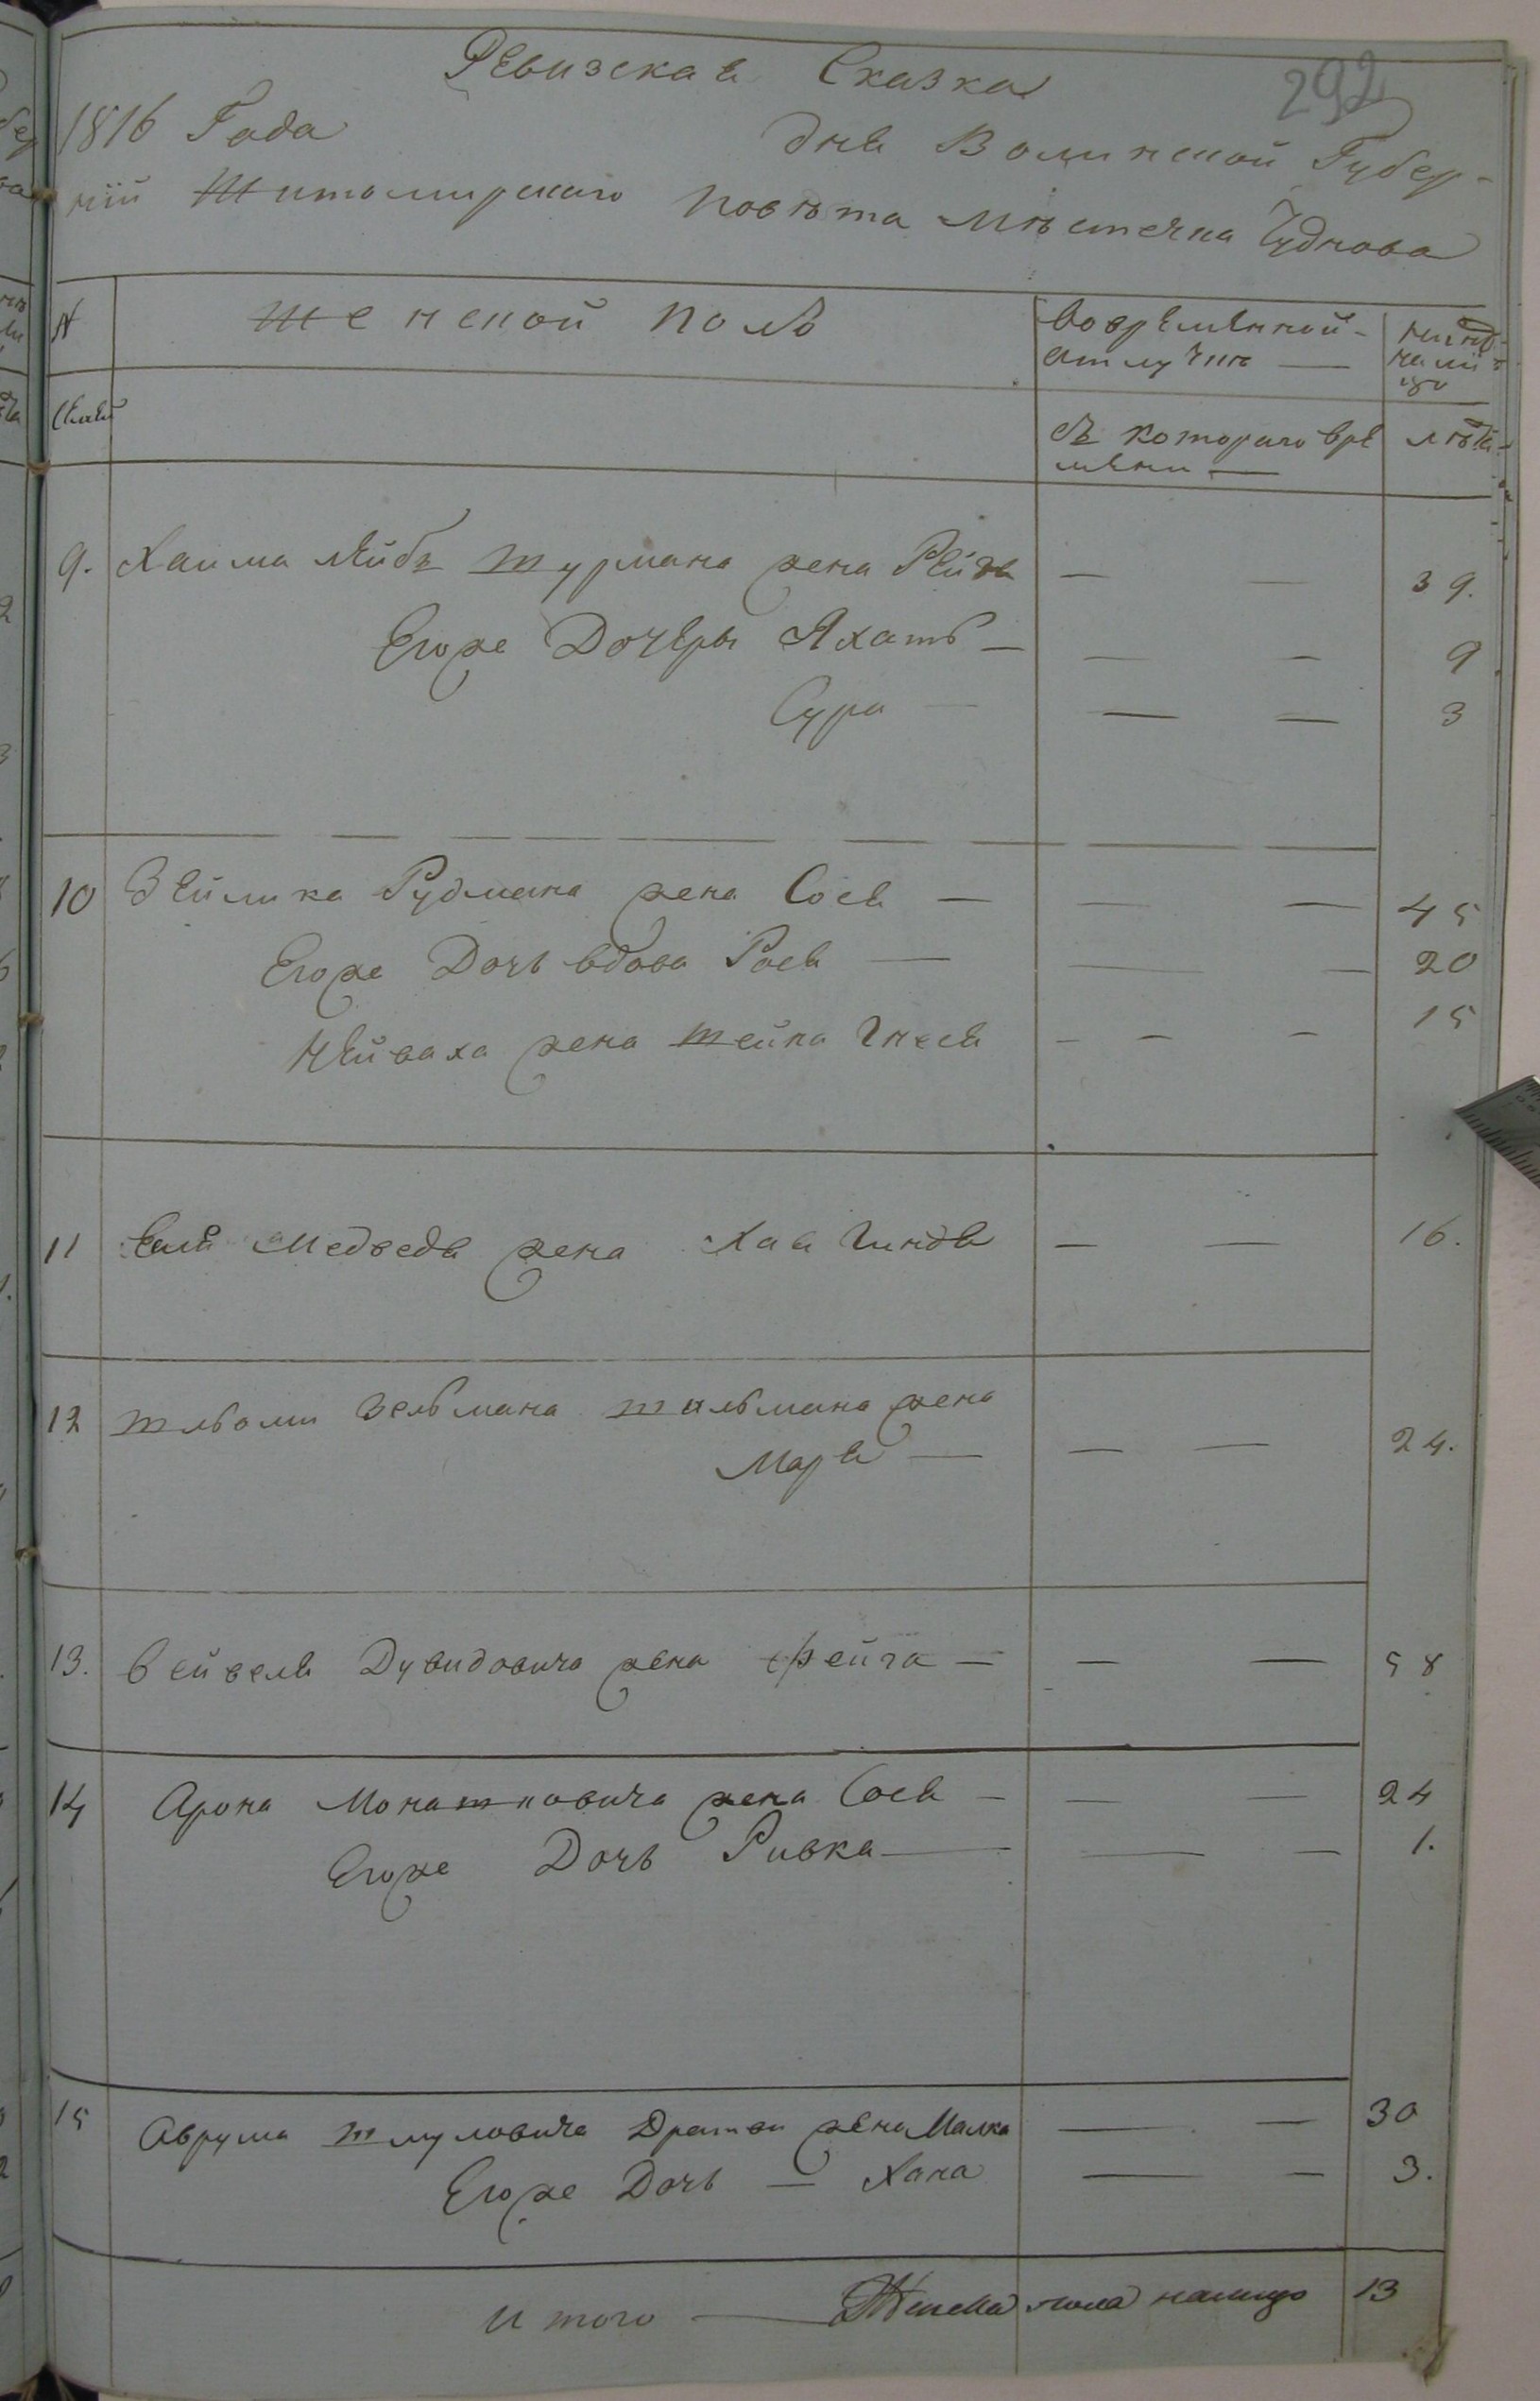 292
Ревизская Сказка
1816 Года дня Волинской Губер-
нïй Житомирскаго повѣта мѣстечка Чуднова
№ Женской полъ вовремянной- нинѣ
отлучкѣ — налицо
Семей
съ котораго вре- лѣта
мяни —
9. Хаима Лейбъ Шурмана жена Рейзя — — 39.
Егоже Дочеры Яхать — — — 9
Сура — — — 3
10 Зейлика Рудмана жена Сося — — — 45
Егоже Дочь вдова Рося — — — 20
жена Шейна Гнеся — — — 15
11 Медведя жена Хая Гиндя — — 16.
12 Шлiоми Зельмана жена
Маря — — — 24.
13. Вейвеля Дувидовича жена Фейга — — — 58
14 Арона Монашковича жена Сося — — — 24
Егоже Дочь Ривка — — — 1.
15 Аврума Шмуловича Дратви жена Малка — — 30
Егоже Дочь — Хана — — 3.
Итого — Женска пола налицо 13